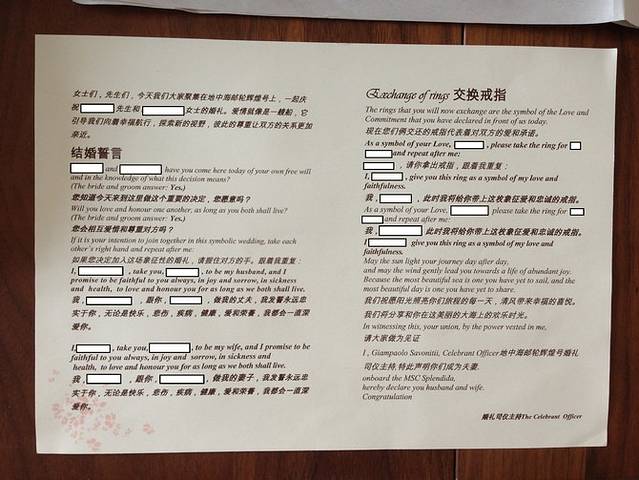 女士们，先生们，今天我们大家聚集在地中海邮轮辉煌号上，一起庆
祝 先生和 女士的婚礼。爱情就像是一艘船，它
引导我们向着幸福航行，探索新的视野，彼此的尊重让双方的关系更加
亲近。
结婚誓言
and have you come here today of your own free will
and in the knowledge of what this decision means?
(The bride and groom answer: Yes.)
您知道今天来到这里做这个重要的决定，您愿意吗？
Will you love and honour one another, as long as you both shall live?
(The bride and groom answer: Yes.)
您会相互爱情和尊重对方吗？
If it is your intention to join together in this symbolic wedding, take each
other's right hand and repeat after me:
如果您决定加入这场象征性的婚礼，请握住对方的手。跟着我重复：
I, , take you, , to be my husband, and I
promise to be faithful to you always, in joy and sorrow, in sickness
and health, to love and honour you for as long as we both shall live.
我， ，跟你， ，做我的丈夫，我发誓永远忠
实于你，无论是快乐，悲伤，疾病，健康，爱和荣誉，我都会一直深
爱你。
I, , take you, , to be my wife, and I promise to be
faithful to you always, in joy and sorrow, in sickness and
health, to love and honour you for as long as we both shall live.
我， ，跟你， ，做我的妻子，我发誓永远忠
实于你，无论是快乐，悲伤，疾病，健康，爱和荣誉，我都会一直深
爱你。
Exchange of rings 交换戒指
The rings that you will now exchange are the symbol of the Love and
Commitment that you have declared in front of us today.
现在您们俩交还的戒指代表着对双方的爱和承诺。
As a symbol of your Love, , please take the ring for
and repeat after me:
，请你拿出戒指，跟着我重复：
I, , give you this ring as a symbol of my love and
faithfulness.
我， ，此时我将给你带上这枚象征爱和忠诚的戒指。
As a symbol of your Love, please take the ring for
and repeat after me:
我， 此时我将给你带上这枚象征爱和忠诚的戒指。
I give you this ring as a symbol of my love and
faithfulness.
May the sun light your journey day after day,
and may the wind gently lead you towards a life of abundant joy.
Because the most beautiful sea is one you have yet to sail, and the
most beautiful day is one you have yet to share.
我们祝愿阳光照亮你们旅程的每一天，清风带来幸福的喜悦。
我们将分享和你在这美丽的大海上的欢乐时光。
In witnessing this, your union, by the power vested in me,
请大家做为见证
I , Giampaolo Savonitti, Celebrant Officer地中海邮轮辉煌号婚礼
司仪主持,特此声明你们成为夫妻.
onboard the MSC Splendida,
hereby declare you husband and wife.
Congratulation
婚礼司仪主持The Celebrant Officer